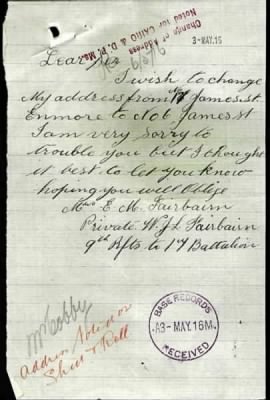 Change of Address
Noted for CAIRO & D.P. Man
3-MAY.16
6/5/16
Dear Sir
I wish to change
My address from 17 James. St.
Enmore to No 6 James. st
I am very sorry to
trouble you but I thought
it best to let you know
hoping you will Oblige
Mrs E. M. Fairbairn
Private W. J. L Fairbairn
9th Rfts to 17 Battalion
Mr Cobby
address noted on
Sheet & Roll
BASE RECORDS
A3-MAY.16M.
RECEIVED